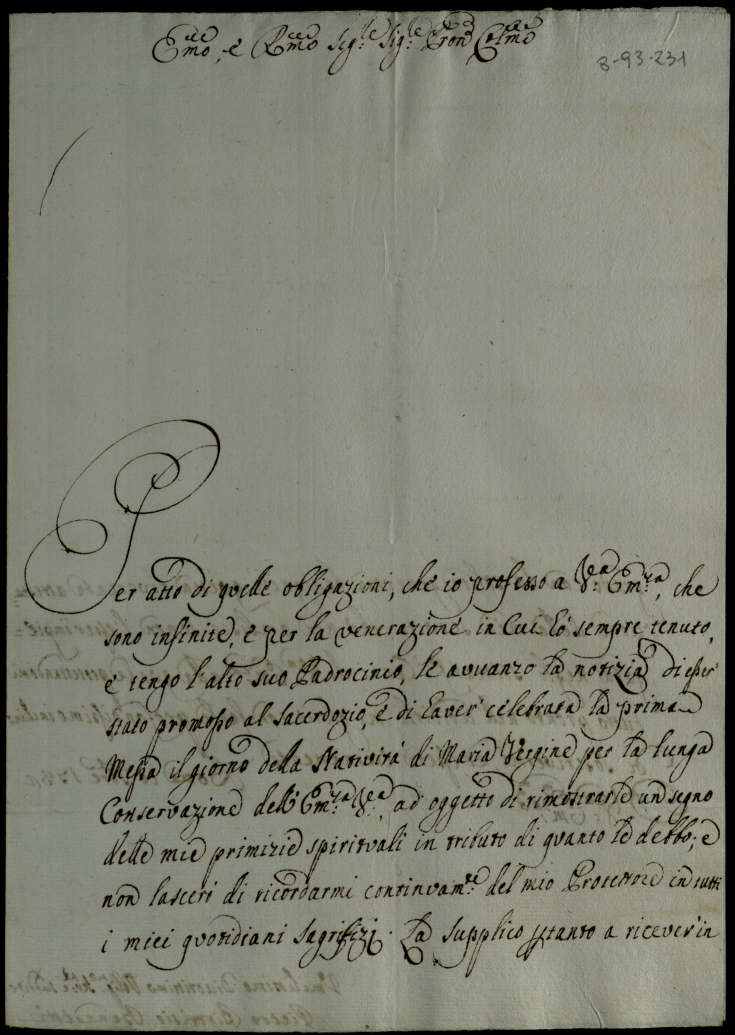 Emo, e Rmo Sig.re Sig.re Pron Colmo
8-93-231
Per atto di quelle obligazioni, che io professo a V.ra Em.za, che
sono infinite, e per la venerazione in cui hò sempre tenuto,
e tengo l'alto suo Padrocinio, le avvanzo la notizia di esser
stato promosso al Sacerdozio, e di haver celebrata la prima
Messa il giorno della Natività di Maria Vergine per la lunga
Conservazione dell'Em.za V.ra, ad oggetto di rimostrarle un segno
delle mie primizie spirituali in tributo di quanto le debbo; e
non lascerò di ricordarmi continuam.te del mio Protettore in tutti
i miei quotidiani Sagrifizi. La supplico ptanto a ricever in